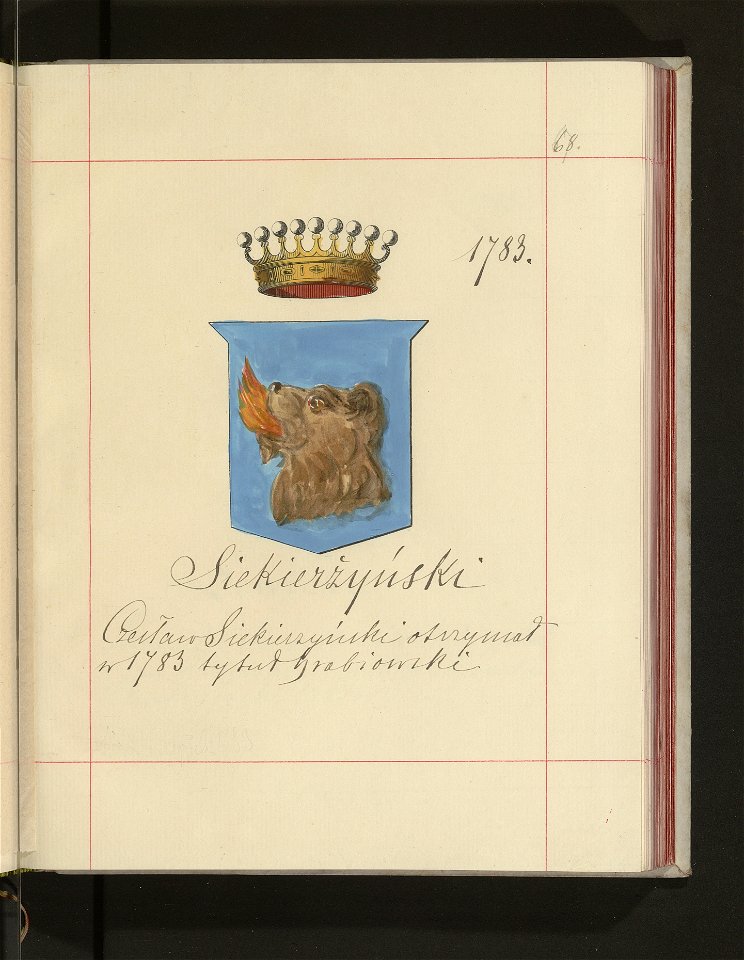 68.
1783.
Siekierżyński
Czesław Siekierzyński otrzymał
w 1783 tytuł hrabiowski